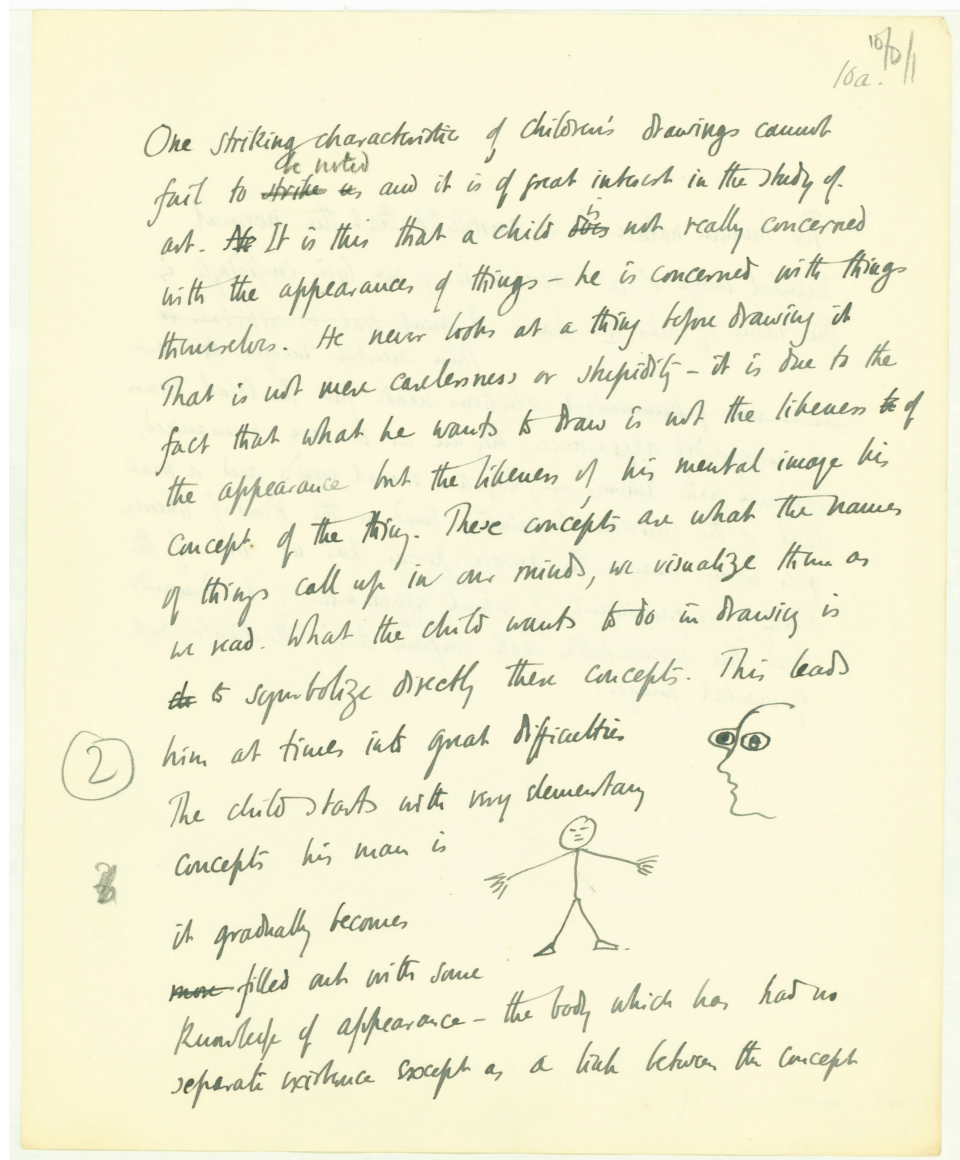 10a.
One striking characteristic of children's drawings cannot
be noted
fail to strike us and it is of great interest in the study of
is
art. It is this that a child does not really concerned
with the appearances of things – he is concerned with things
themselves. He never looks at a thing before drawing it
That is not mere carelessness or stupidity – it is due to the
fact that what he wants to draw is not the likeness of
the appearance but the likeness of his mental image his
concept of the thing. These concepts are what the names
of things call up in our minds, we visualize them as
we read. What the child wants to do in drawing is
to symbolize directly these concepts. This leads
2
him at times into great difficulties
The child starts with very elementary
concepts his man is
it gradually becomes
more filled out with some
knowledge of appearance – the body which has had no
separate existence except as a link between the concept